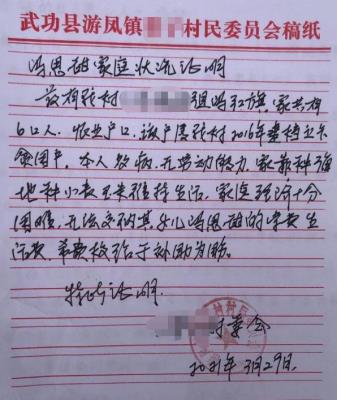 武功县游凤镇 村民委员会稿纸
冯思甜家庭状况证明
兹有我村 组冯红旗,家共有
6口人,农业户口,该户属我村2016年建档立卡
贫困户,本人多病,无劳动能力,家靠种
地种小麦玉米维持生活,家庭经济十分
困难,无法交纳其女儿冯思甜的学费生
活费,希贵校给于补助为盼。
特此证明
村委会
2021年3月29日